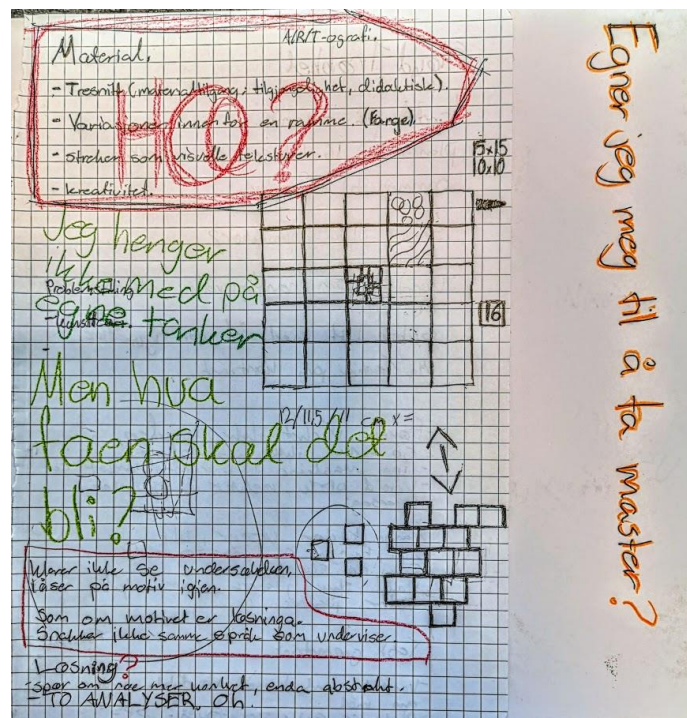 A/R/T-ografi.
Material.
- Tresnitt (materialtilgang, tilgjengelighet, didaktisk).
- Variasjoner innenfor en ramme. (Farge)
- streken som visuelle teksturer.
- kreativitet.
HO?
15x15
10x10
Jeg henger
ikke med på
egne tanker
Problemstilling
16
Men hva
faen skal det
bli?
12/11,5/11 cm x =
Klarer ikke se undersøkelsen,
låser på motiv igjen.
Som om motivet er løsninga.
Snakker ikke samme språk som underviser.
Løsning?
- spør om noe mer konkret, enda abstrakt.
- TO ANALYSER. Oh.
Egner jeg meg til å ta master?